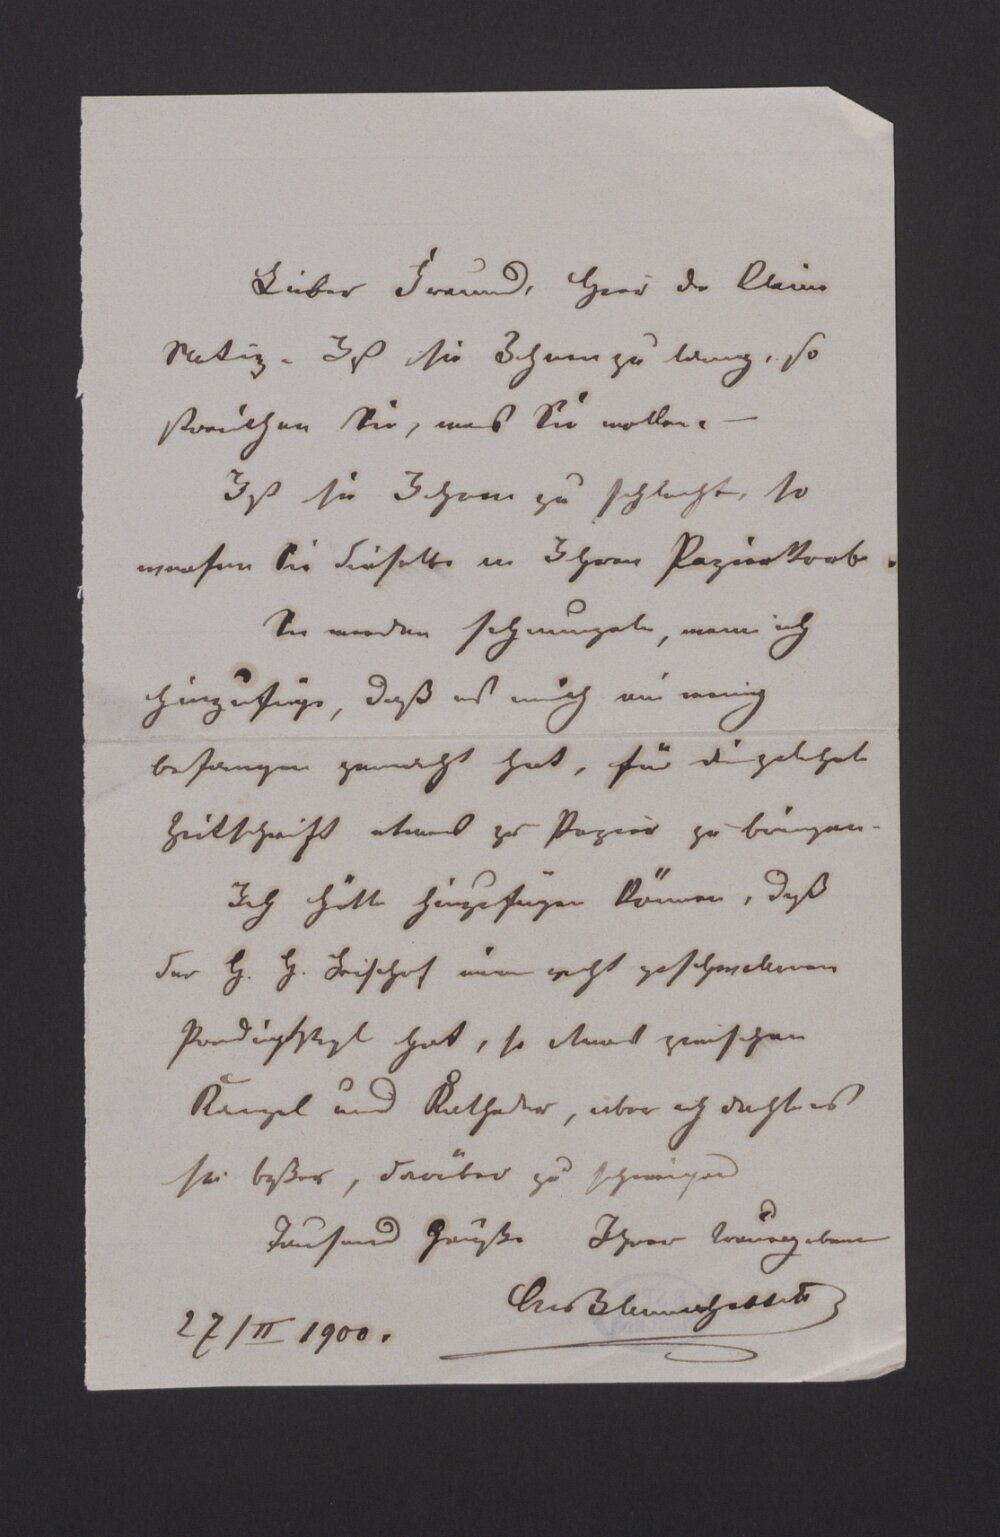 Lieber Freund, Hier die kleine
Notiz. Ist sie Ihnen zu lang, so
streichen Sie, was Sie wollen. —
Ist sie Ihnen zu schlecht, so
werfen Sie dieselbe in Ihren Papierkorb.
Sie werden schmunzeln, wenn ich
hinzufüge, daß es mich ein wenig
befangen gemacht hat, für die gelehrte
Zeitschrift etwas zu Papier zu bringen.
Ich hätte hinzufügen können, daß
der H. H. Bischof einen recht
Predigtstyl hat, so etwas zwischen
Kanzel und Katheder, aber ich dachte es
sei beßer, darüber zu schweigen
Tausend Grüße Ihrer treuergebenen
Blennerhassett
27/II 1900.